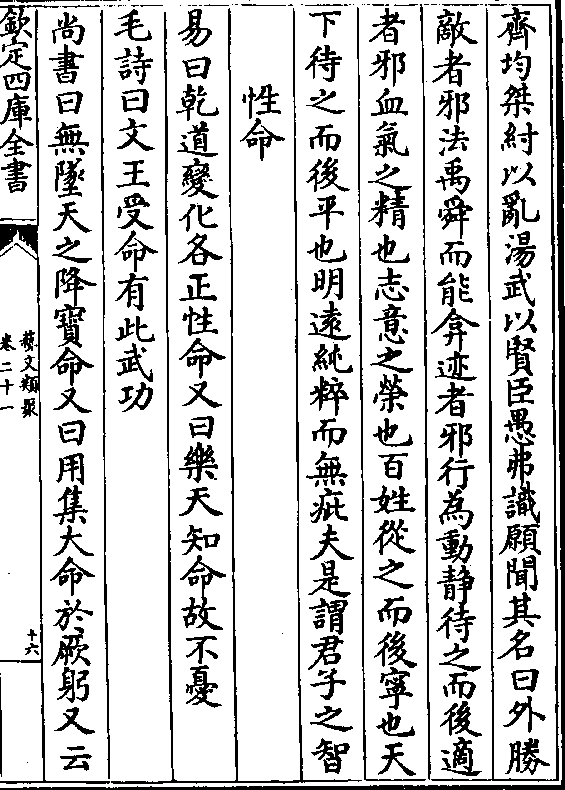 齊均桀紂以亂湯武以賢臣愚弗識願聞其名曰外勝
敵者邪法禹舜而能弇迹者邪行為動静待之而後適
者邪血氣之精也志意之榮也百姓從之而後寧也天
下待之而後平也明逺純粹而無疵夫是謂君子之智
性命
易曰乾道變化各正性命又曰樂天知命故不憂
毛詩曰文王受命有此武功
尚書曰無墜天之降寶命又曰用集大命於厥躬又云
欽定四庫全書
藝文類聚
卷二十一
十六